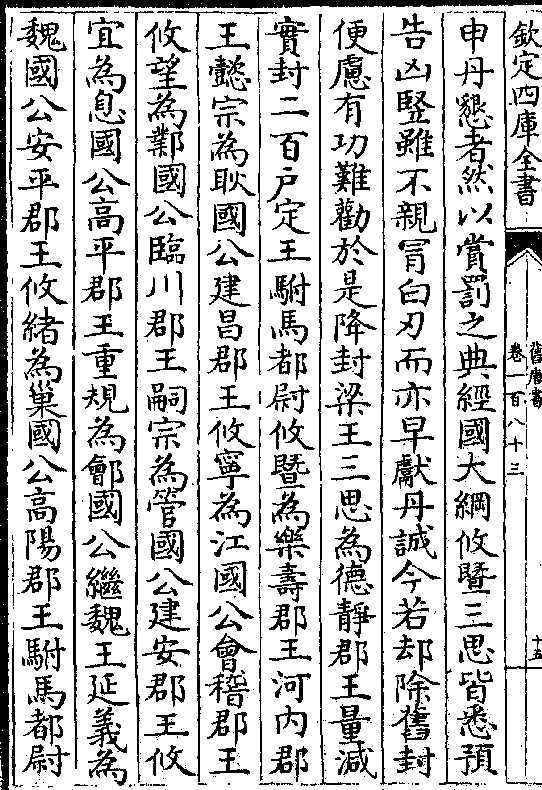 欽定四庫全書
舊唐書
卷一百八十三
十五
申丹懇者然以賞罰之典經國大綱攸暨三思皆悉預
告凶豎雖不親冒白刃而亦早獻丹誠今若却除舊封
便慮有功難勸於是降封梁王三思為德靜郡王量減
實封二百户定王駙馬都尉攸暨為樂壽郡王河内郡
王懿宗為耿國公建昌郡王攸寧為江國公會稽郡王
攸望為鄴國公臨川郡王嗣宗為管國公建安郡王攸
宜為息國公高平郡王重規為鄶國公繼魏王延義為
魏國公安平郡王攸緒為巢國公高陽郡王駙馬都尉